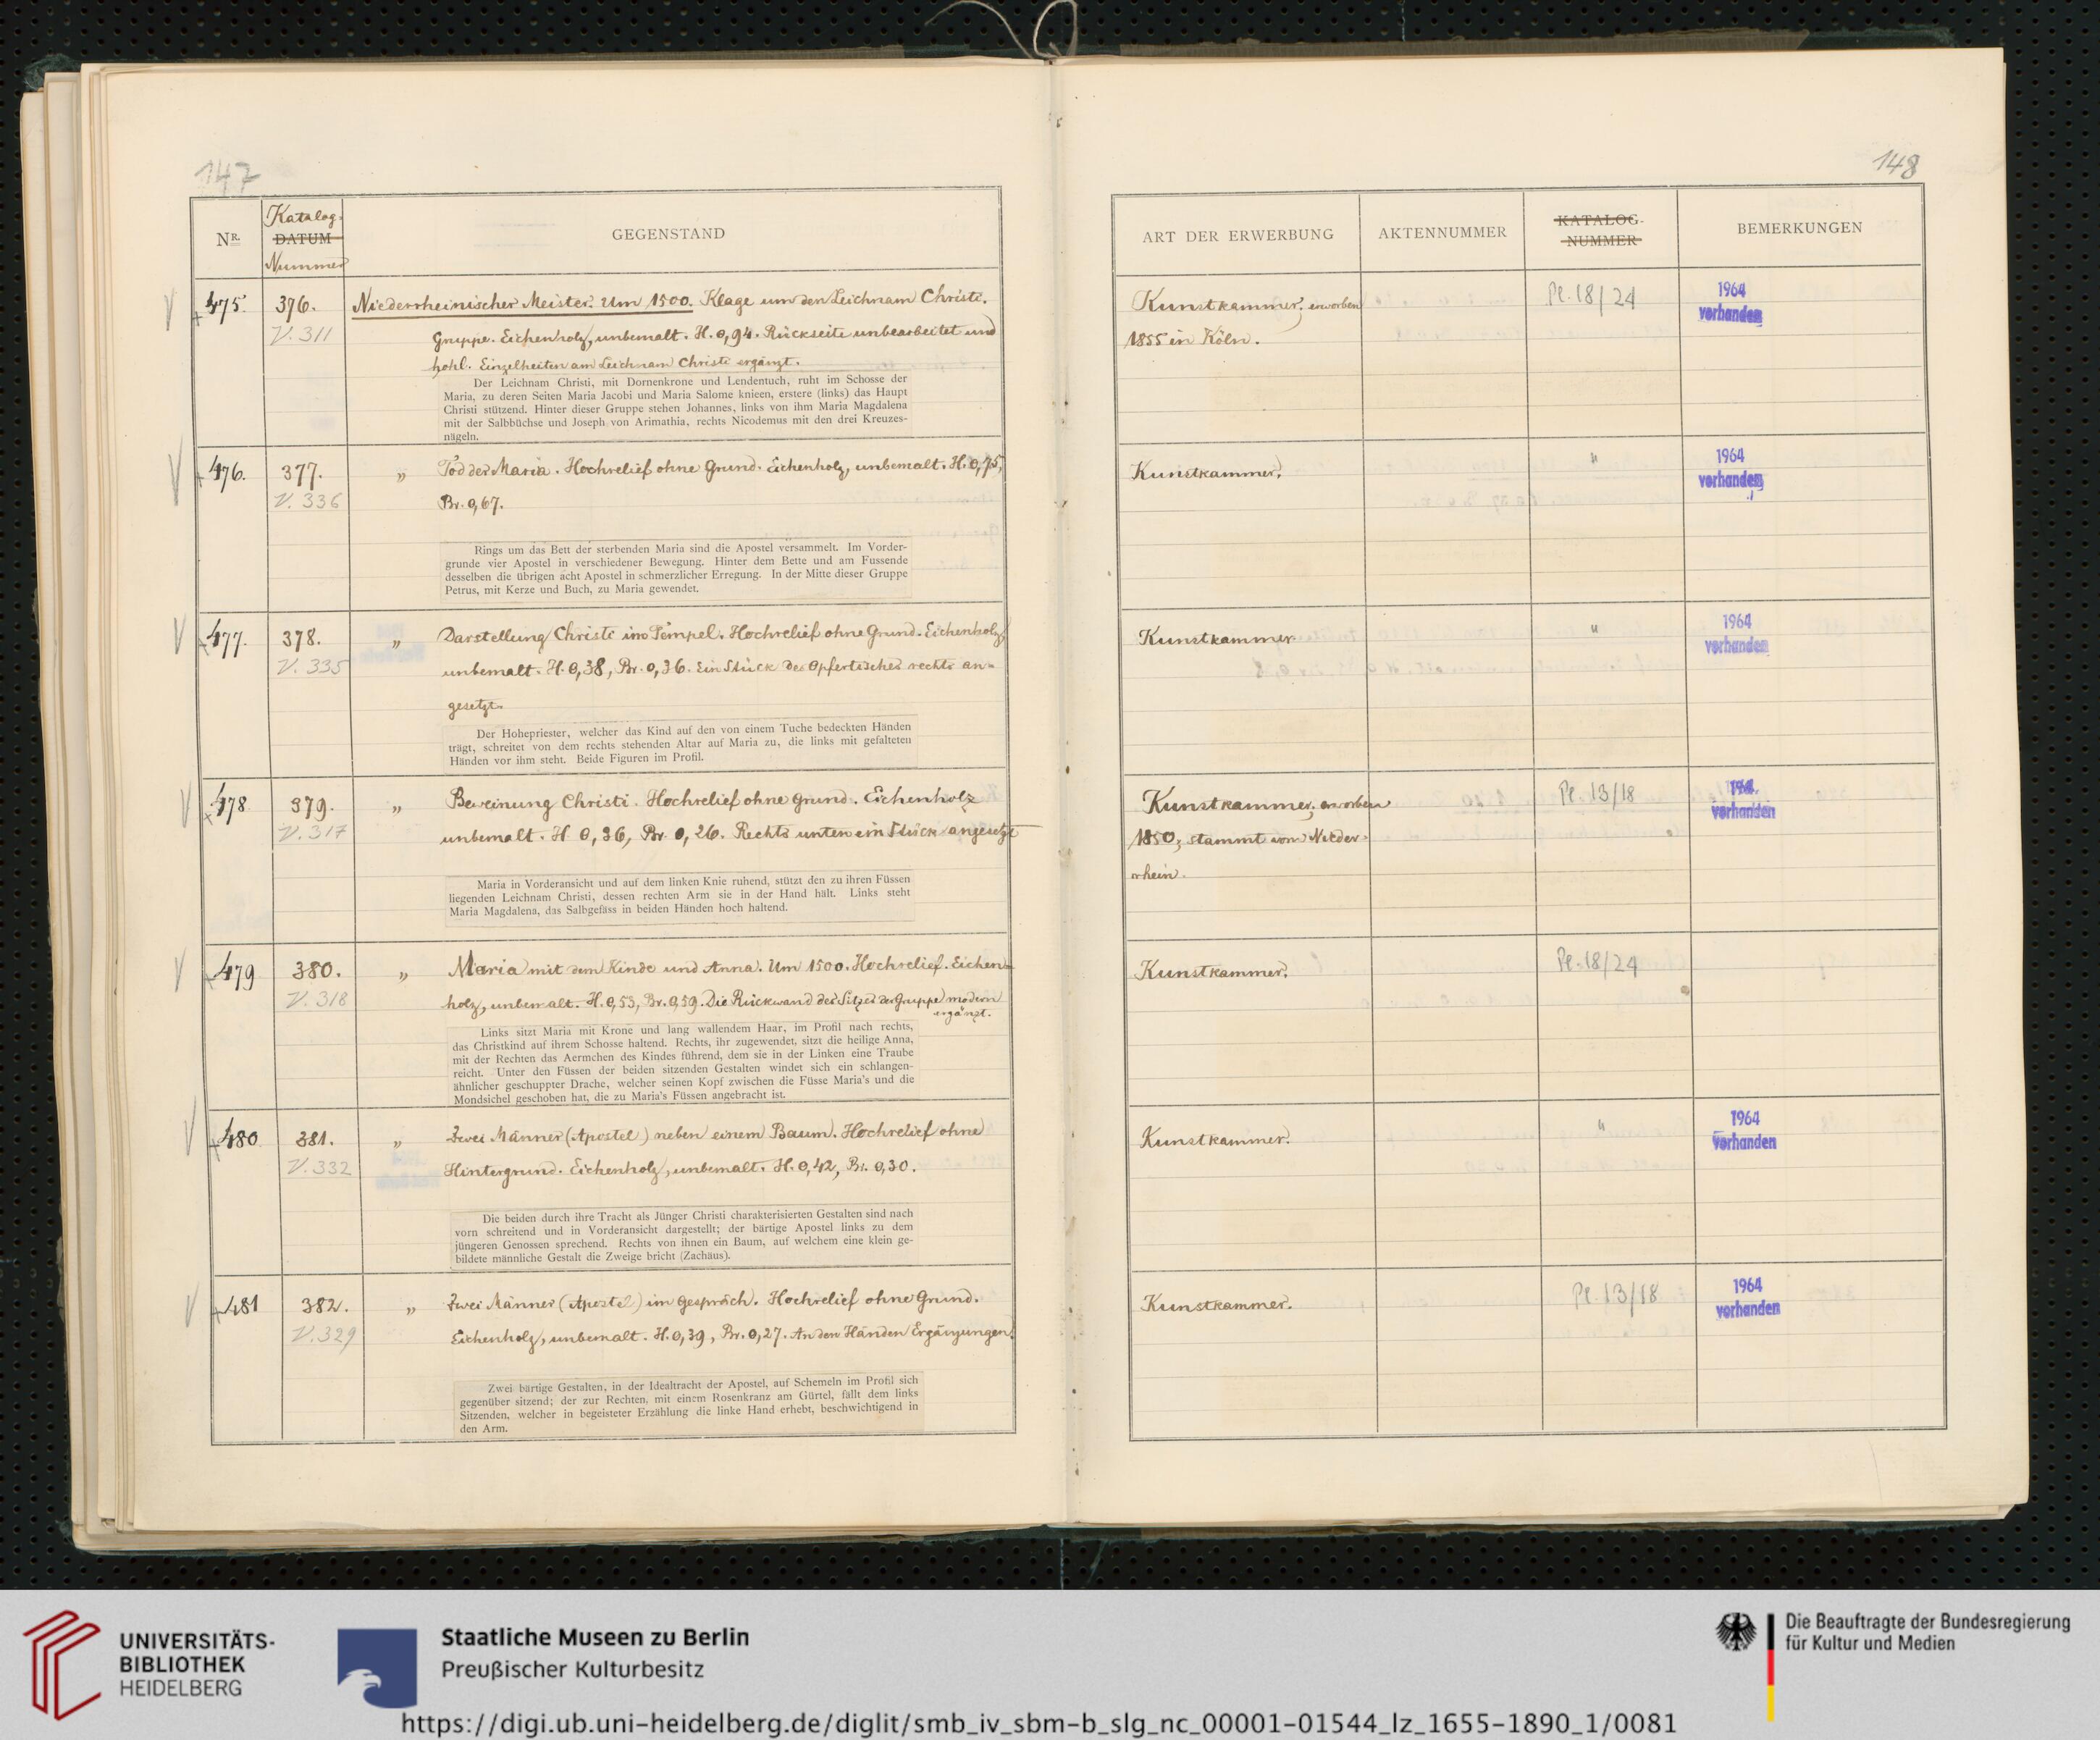 147
Nr.
Katalog-
DATUM
Nummer
GEGENSTAND
475.
376.
V. 311
Niederrheinischer Meister. Um 1500. Klage um den Leichnam Christi.
Gruppe. Eichenholz, unbemalt. H. 0,94. Rückseite unbearbeitet und
hohl. Einzelheiten am Leichnam Christi ergänzt.
Der Leichnam Christi, mit Dornenkrone und Lendentuch, ruht im Schosse der
Maria, zu deren Seiten Maria Jacobi und Maria Salome knieen, erstere (links) das Haupt
Christi stützend. Hinter dieser Gruppe stehen Johannes, links von ihm Maria Magdalena
mit der Salbbüchse und Joseph von Arimathia, rechts Nicodemus mit den drei Kreuzes-
nägeln.
476.
377.
V. 336
„ Tod der Maria. Hochrelief ohne Grund. Eichenholz, unbemalt. H. 0,75,
Br. 0,67.
Rings um das Bett der sterbenden Maria sind die Apostel versammelt. Im Vorder-
grunde vier Apostel in verschiedener Bewegung. Hinter dem Bette und am Fussende
desselben die übrigen acht Apostel in schmerzlicher Erregung. In der Mitte dieser Gruppe
Petrus, mit Kerze und Buch, zu Maria gewendet.
477.
378.
V. 335
„ Darstellung Christi im Tempel. Hochrelief ohne Grund. Eichenholz,
unbemalt. H. 0,38, Br. 0,36. Ein Stück des Opfertisches rechts an-
gesetzt.
Der Hohepriester, welcher das Kind auf den von einem Tuche bedeckten Händen
trägt, schreitet von dem rechts stehenden Altar auf Maria zu, die links mit gefalteten
Händen vor ihm steht. Beide Figuren im Profil.
478
379.
V. 317
„ Beweinung Christi. Hochrelief ohne Grund. Eichenholz
unbemalt. H. 0,36, Br. 0,26. Rechts unten ein Stück angesetzt
Maria in Vorderansicht und auf dem linken Knie ruhend, stützt den zu ihren Füssen
liegenden Leichnam Christi, dessen rechten Arm sie in der Hand hält. Links steht
Maria Magdalena, das Salbgefäss in beiden Händen hoch haltend.
479
380.
V. 318
„ Maria mit dem Kinde und Anna. Um 1500. Hochrelief. Eichen-
holz, unbemalt. H. 0,53, Br. 0,59. Die Rückwand des Sitzes der Gruppe modern
ergänzt.
Links sitzt Maria mit Krone und lang wallendem Haar, im Profil nach rechts,
das Christkind auf ihrem Schosse haltend. Rechts, ihr zugewendet, sitzt die heilige Anna,
mit der Rechten das Aermchen des Kindes führend, dem sie in der Linken eine Traube
reicht. Unter den Füssen der beiden sitzenden Gestalten windet sich ein schlangen-
ähnlicher geschuppter Drache, welcher seinen Kopf zwischen die Füsse Maria's und die
Mondsichel geschoben hat, die zu Maria's Füssen angebracht ist.
480
381.
V. 332
„ Zwei Männer (Apostel) neben einem Baum. Hochrelief ohne
Hintergrund. Eichenholz, unbemalt. H. 0,42, Br. 0,30.
Die beiden durch ihre Tracht als Jünger Christi charakterisierten Gestalten sind nach
vorn schreitend und in Vorderansicht dargestellt; der bärtige Apostel links zu dem
jüngeren Genossen sprechend. Rechts von ihnen ein Baum, auf welchem eine klein ge-
bildete männliche Gestalt die Zweige bricht (Zachäus).
481
382.
V. 329
„ Zwei Männer (Apostel) im Gespräch. Hochrelief ohne Grund.
Eichenholz, unbemalt. H. 0,39, Br. 0,27. An den Händen Ergänzungen.
Zwei bärtige Gestalten, in der Idealtracht der Apostel, auf Schemeln im Profil sich
gegenüber sitzend; der zur Rechten, mit einem Rosenkranz am Gürtel, fällt dem links
Sitzenden, welcher in begeisteter Erzählung die linke Hand erhebt, beschwichtigend in
den Arm.
148
ART DER ERWERBUNG
AKTENNUMMER
KATALOG-
NUMMER
BEMERKUNGEN
Kunstkammer; erworben
1855 in Köln.
Pl. 18/24
1964
vorhanden
Kunstkammer.
"
1964
vorhanden
Kunstkammer
"
1964
vorhanden
Kunstkammer; erworben
1850; stammt vom Nieder-
rhein.
Pl. 13/18
1964
vorhanden
Kunstkammer.
Pl. 18/24
Kunstkammer.
"
1964
vorhanden
Kunstkammer.
Pl. 13/18
1964
vorhanden
UNIVERSITÄTS-
BIBLIOTHEK
HEIDELBERG
Staatliche Museen zu Berlin
Preußischer Kulturbesitz
Die Beauftragte der Bundesregierung
für Kultur und Medien
https://digi.ub.uni-heidelberg.de/diglit/smb_iv_sbm-b_slg_nc_00001-01544_lz_1655-1890_1/0081